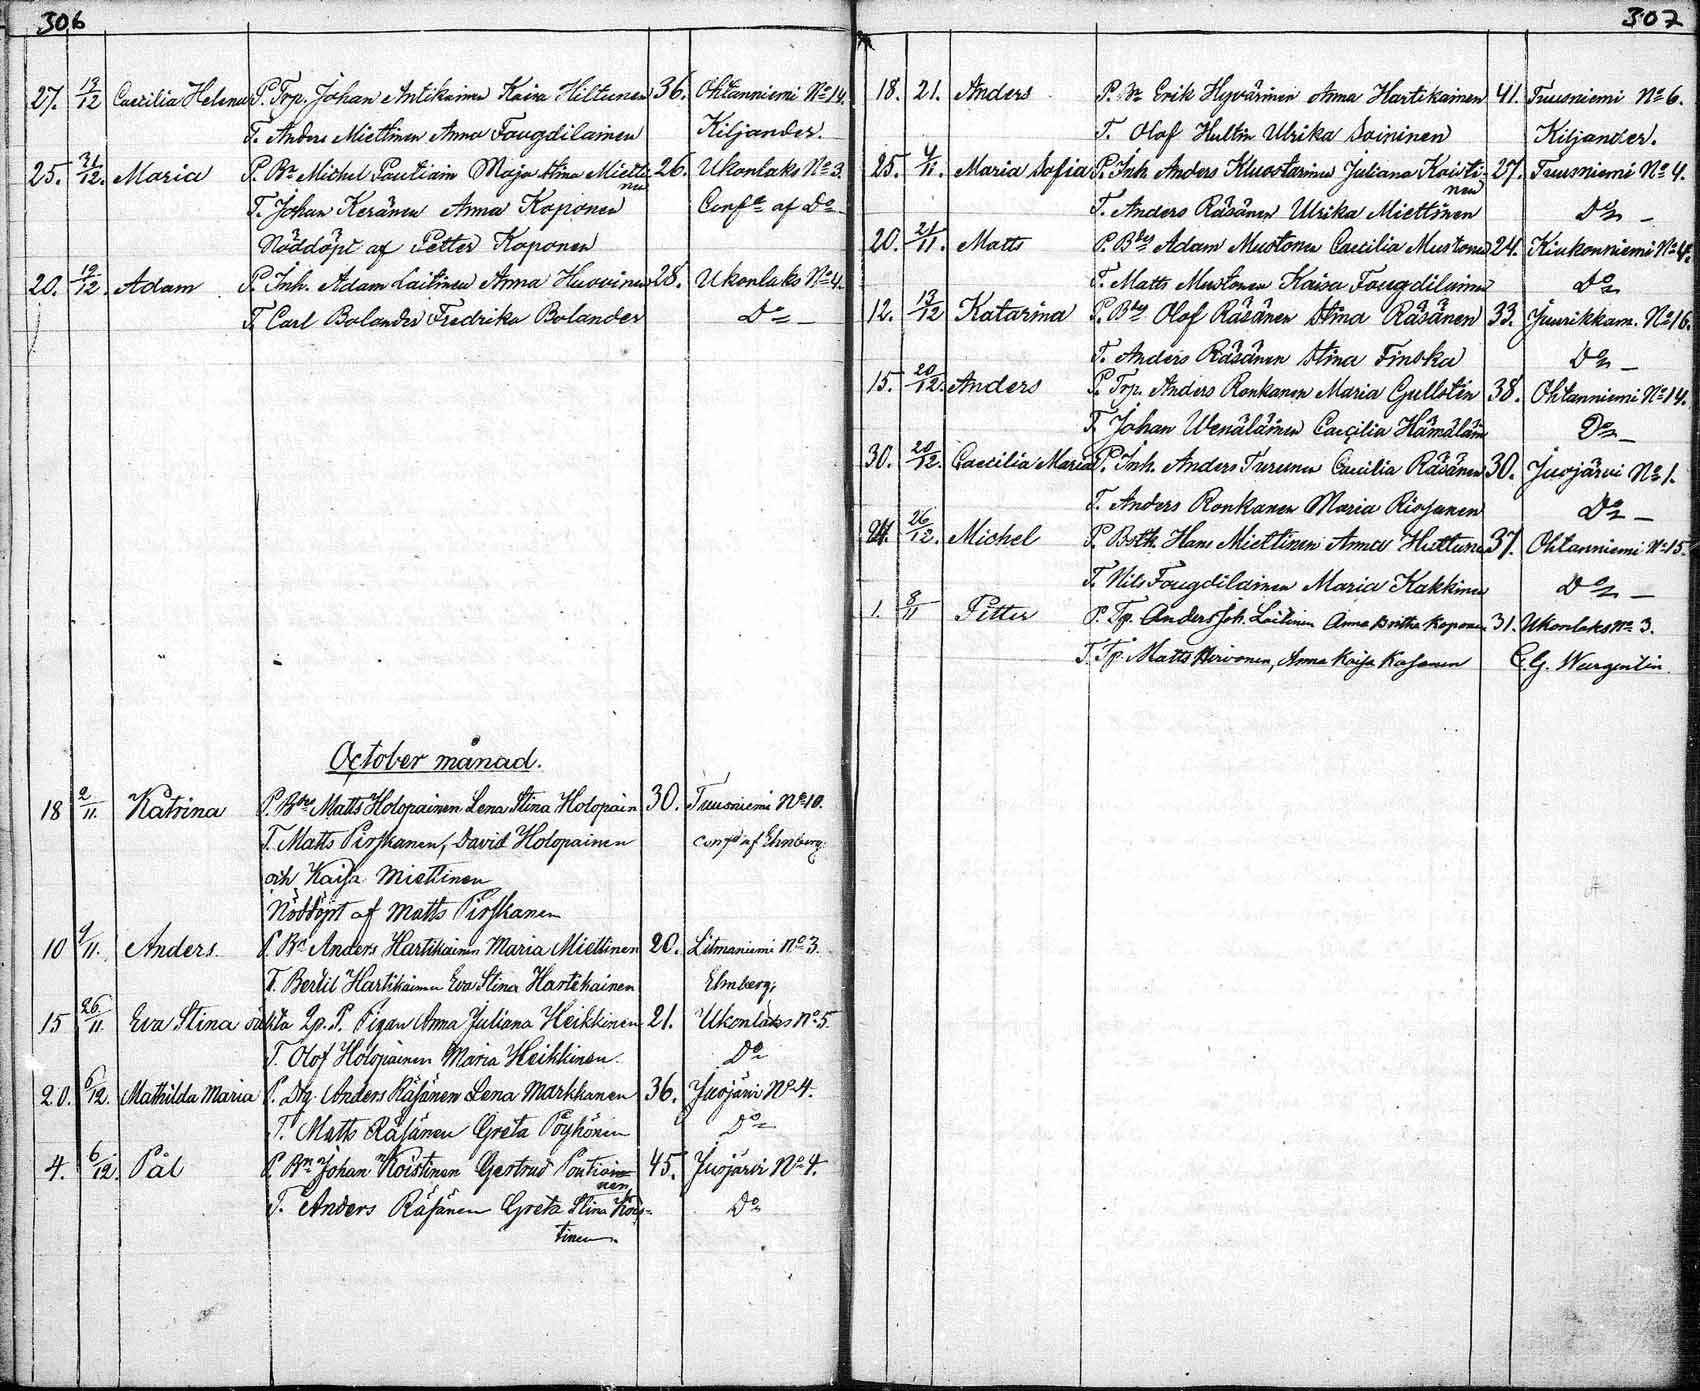 306
27. 12/12 Caecilia Helena P. Trp. Johan Antikainen Kaisa Hiltunen 36. Ohtanniemi No 14.
T. Anders Miettinen Anna Fougdilainen Kiljander.
25. 31/12. Maria P. Bn Michel Pautiain Maja Stina Mietti 26. Ukonlaks No 3.
nen
T. Johan Keränen Anna Koponen Conf. af Do
Nöddöpt af Petter Koponen
20. 12/12. Adam P. Inh. Adam Laitinen Anna Huovinen 28. Ukonlaks No 4.
T. Carl Bolander Fredrika Bolander Do —
October månad.
18 2/11. Katrina P. Matts Holopainen Lena Stina Holopain 30. Tuusniemi No 10.
T. Matts Pirskanen, David Holopainen conf. af Ehrnberg.
och Kaisa Miettinen
Nöddöpt af Matts Pirskanen
10 9/11. Anders. P. Bn Anders Hartikainen Maria Miettinen 20. Litmaniemi No 3.
T. Bertil Hartikainen Eva Stina Hartikainen Ehnberg.
15 26/11 Eva Stina oäkta P. Pigan Anna Juliana Heikkinen 21. Ukonlaks No 5.
T. Olof Holopainen Maria Heikkinen. Do
20. 6/12. Mathilda Maria P. Drg. Anders Räsänen Lena Markkanen 36. Juojärvi No 4.
T. Matts Räsänen Greta Pöyhönen Do
4. 6/12. Pål P. Bn Johan Koistinen Gertrud Poutiai 45. Juojärvi No 4.
nen
T. Anders Räsänen Greta Stina Kois- Do
tinen
307
18. 21. Anders P. Bn Erik Hyvärinen Anna Hartikainen 41. Tuusniemi No 6.
T. Olof Hultin Ulrika Soininen Kiljander.
25. 4/11. Maria Sofia P. Inh. Anders Kluostarinen Juliana Koisti- 27. Tuusniemi No 4.
nen
T. Anders Räsänen Ulrika Miettinen Do —
20. 21/11. Matts P. Adam Mustonen Caecilia Mustonen 24. Kiukonniemi No 4.
T. Matts Mustonen Kaisa Fougdilainen Do
12. 13/12 Katarina P. Olof Räsänen Stina Räsänen 33. Juurikkam. No 16.
T. Anders Räsänen Stina Finska Do —
15. 20/12. Anders P. Trp. Anders Ronkanen Maria Gullstén 38. Ohtanniemi No 14.
T. Johan Wenäläinen Caecilia Hämäläin Do —
30. 20/12. Caecilia Maria P. Inh. Anders Turunen Caecilia Räsänen 30. Juojärvi No 1.
T. Anders Ronkanen Maria Rissanen Do —
26/12. Michel P. Bsth. Hans Miettinen Anna Huttunen 37. Ohtanniemi No 15.
T. Nils Fougdilainen Maria Kakkinen Do —
1. 8/11 Petter P. Tp. Anders Joh. Laitinen Anna Britha Koponen 31. Ukonlaks No 3.
T. Tp. Matts Hirvonen, Anna Kaisa Kasanen C. G. Wargentin.